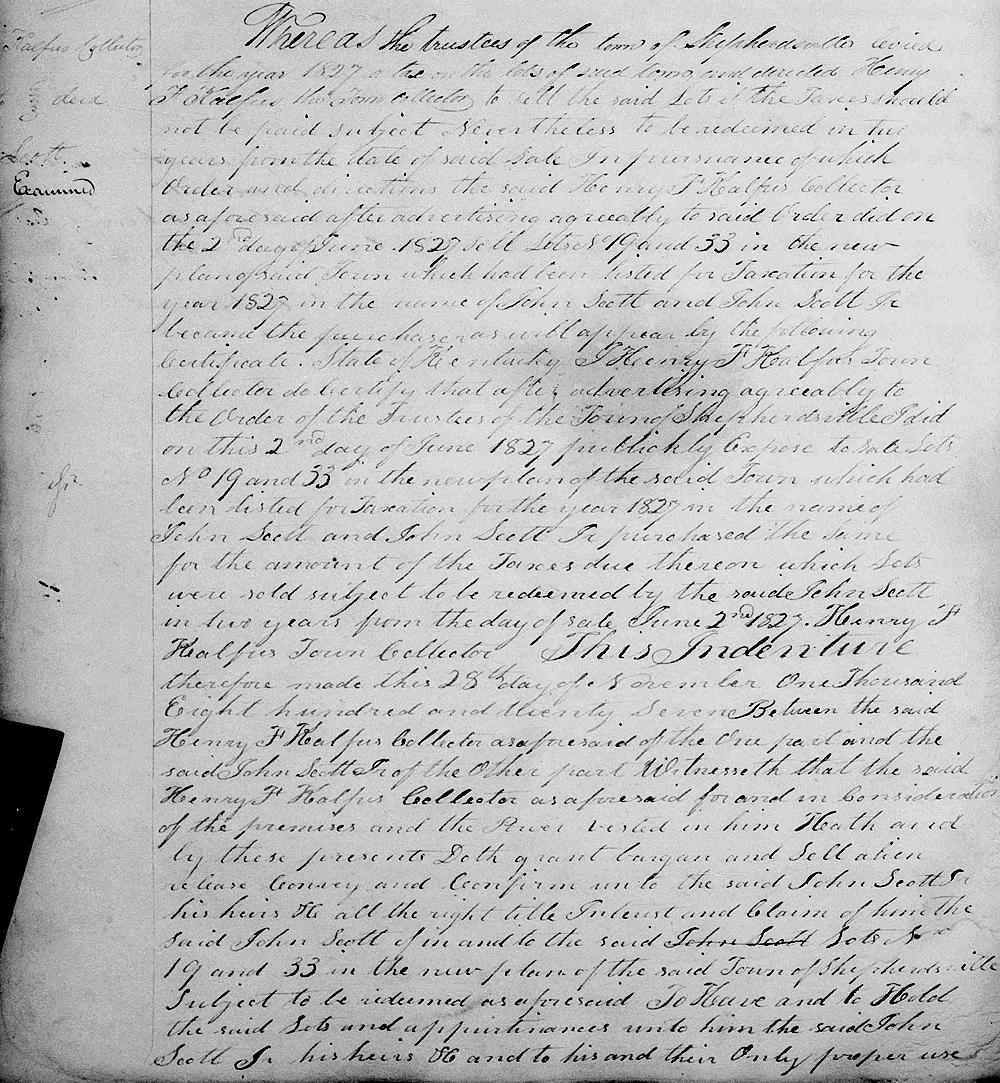 Kalfus Collector
deed
Scott
Examined
Whereas the trustees of the town of Shepherdsville levied
for the year 1827 a tax on the lots of said town, and directed Henry
F Kalfus the Town Collector to sell the said Lots if the Taxes should
not be paid subject Nevertheless to be redeemed in two
years from the date of said Sale In pursuance of which
Order and directions the said Henry F Kalfus Collector
as aforesaid after advertising agreeably to said Order did on
the 2nd day of June 1827 sell Lots No 19 and 33 in the new
plan of said Town which had been listed for Taxation for the
year 1827 in the name of John Scott and John Scott Jr
became the purchaser as will appear by the following
Certificate. State of Kentucky I Henry F Kalfus Town
Collector do Certify that after advertising agreeably to
the Order of the Trustees of the Town of Shepherdsville I did
on this 2nd day of June 1827 publickly Expose to sale Lots
No 19 and 33 in the new plan of the said Town which had
been listed for Taxation for the year 1827 in the name of
John Scott and John Scott Jr purchased the same
for the amount of the Taxes due thereon which Lots
were sold subject to be redeemed by the said John Scott
in two years from the day of sale June 2nd 1827. Henry F
Kalfus Town Collector This Indenture
therefore made this 28th day of November One Thousand
Eight hundred and twenty Seven Between the said
Henry F Kalfus Collector as aforesaid of the One part and the
said John Scott Jr of the Other part Witnesseth that the said
Henry F Kalfus Collector as aforesaid for and in Consideration
of the premises and the Power vested in him Hath and
by these presents Doth grant bargan and Sell alien
release Convey and Confirm unto the said John Scott Jr
his heirs &c all the right title Interest and Claim of him the
said John Scott of in and to the said John Scott Lots No
19 and 33 in the new plan of the said Town of Shepherdsville
Subject to be redeemed as aforesaid To Have and to Hold
the said Lots and appurtinances unto him the said John
Scott Jr his heirs &c and to his and their Only proper use